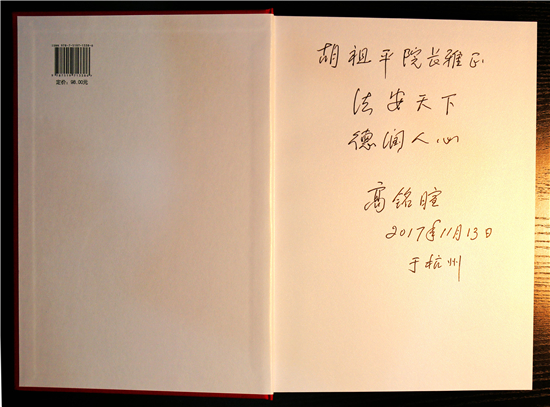 定价：96.00元
胡祖平院长雅正
法安天下
德润人心
高铭暄
2017年11月13日
于杭州